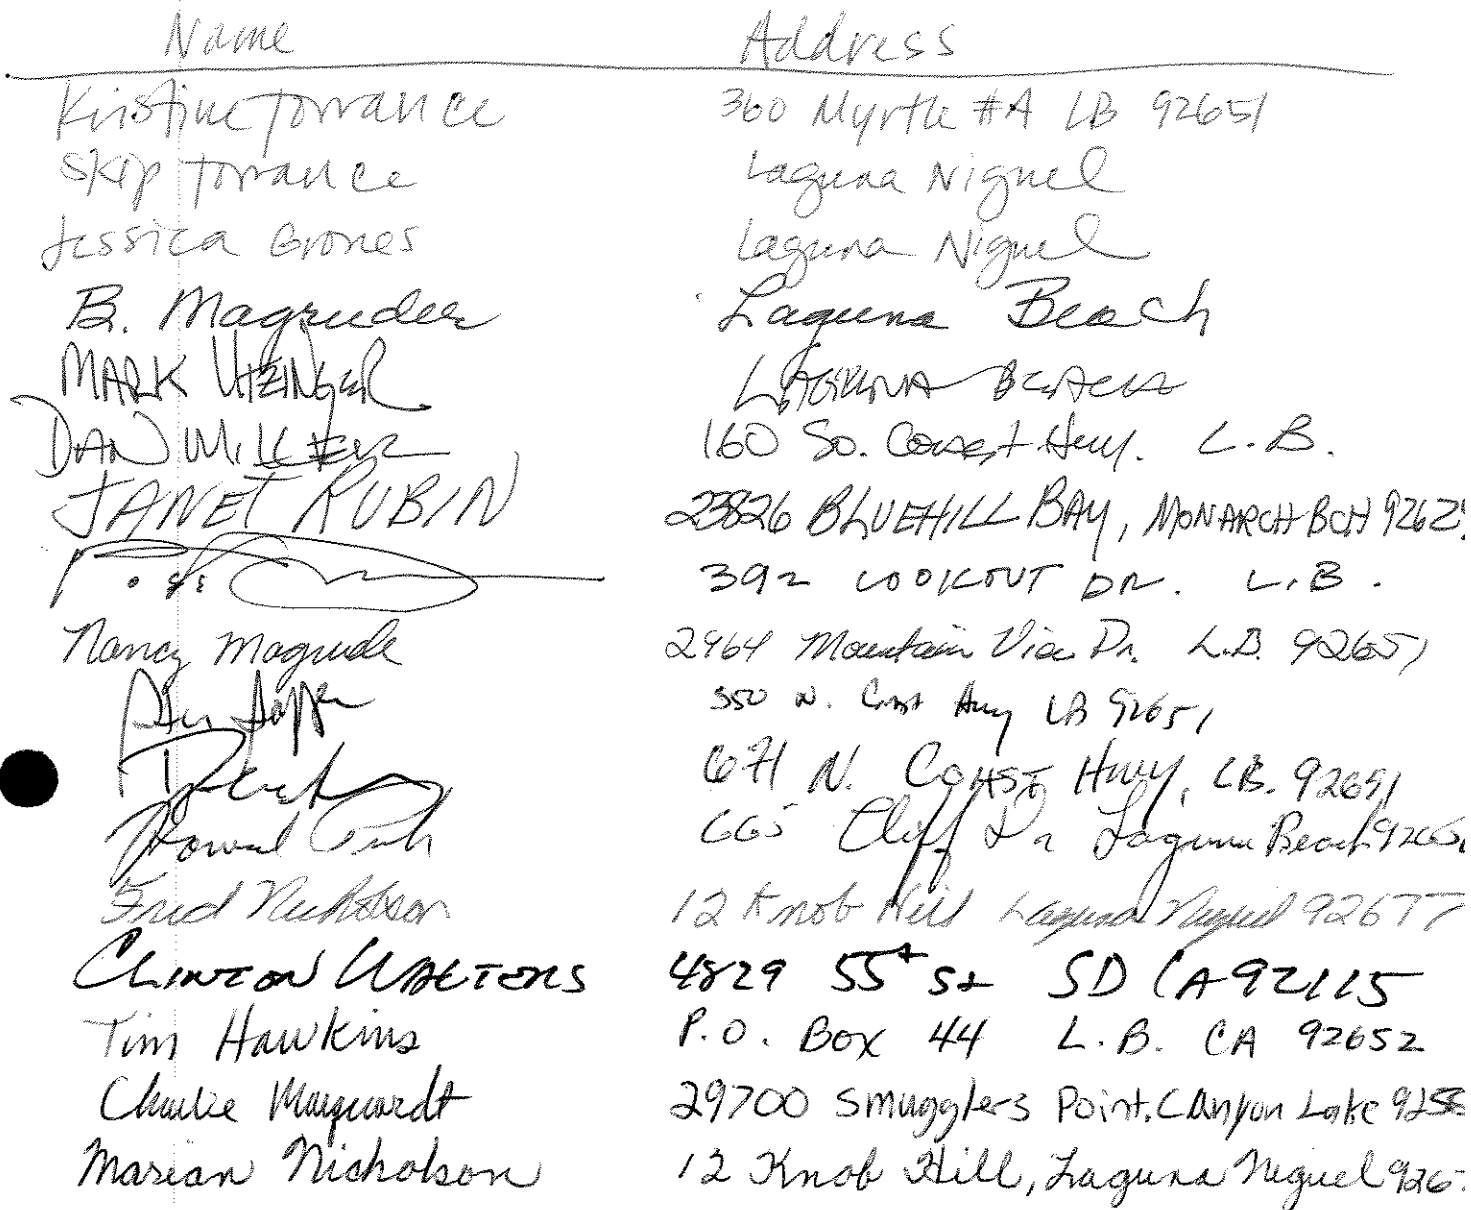 Name Address
Kristine Torrance 360 Myrtle #A LB 92651
Skip Torrance Laguna Niguel
Jessica Grones Laguna Niguel
B. Magruder Laguna Beach
MARK UTZINGER LAGUNA BEACH
DAN MILLER 160 So. Coast Hwy. L.B.
JANET RUBIN 23826 BLUEHILL BAY, MONARCH BCH 92629
392 LOOKOUT DR. L.B.
Nancy Magrude 2964 Mountain View Dr. L.B. 92651
550 N. Coast Hwy LB 92651
671 N. COAST HWY, LB. 92651
665 Cliff Dr Laguna Beach 9265
Fred Nicholson 12 Knob Hill Laguna Niguel 92677
CLINTON WALTERS 4829 55th St SD CA 92115
Tim Hawkins P.O. Box 44 L.B. CA 92652
Charlie Marquardt 29700 Smugglers Point. Canyon Lake
Marian Nicholson 12 Knob Hill, Laguna Niguel 9267